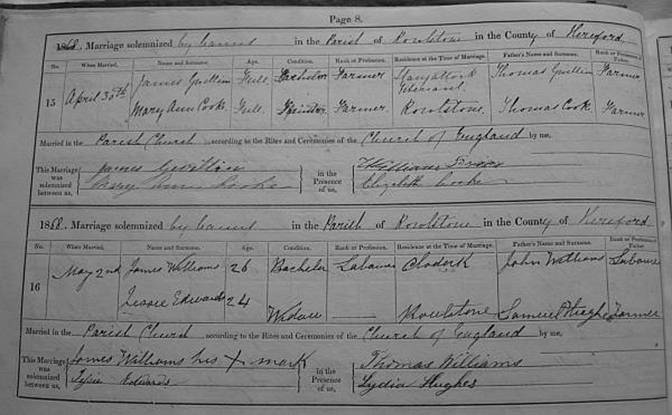 Page 8.
1868. Marriage solemnized by banns in the Parish of Rowlstone in the County of Hereford
No. When Married. Name and Surname. Age. Condition. Rank or Profession. Residence at the Time of Marriage. Father's Name and Surname. Rank or Profession of Father.
15 April 30th James Gwillim Full Bachelor Farmer Thomas Gwillim Farmer
Mary Ann Cook. Full. Spinster Farmer. Rowlstone. Thomas Cook. Farmer
Married in the Parish Church according to the Rites and Ceremonies of the Church of England by me,
This Marriage was solemnized between us, James Gwillim in the Presence of us, William
Mary Ann Cooke Elizabeth Cooke
1868. Marriage solemnized by banns in the Parish of Rowlstone in the County of Hereford
No. When Married. Name and Surname. Age. Condition. Rank or Profession. Residence at the Time of Marriage. Father's Name and Surname. Rank or Profession of Father.
16 May 2nd James Williams 26 Bachelor Labourer Clodock John Williams Labourer
Jessie Edwards 24 Widow Rowlstone Samuel Hughes Farmer
Married in the Parish Church according to the Rites and Ceremonies of the Church of England by me,
This Marriage was solemnized between us, James Williams his X mark in the Presence of us, Thomas Williams
Edwards Lydia Hughes